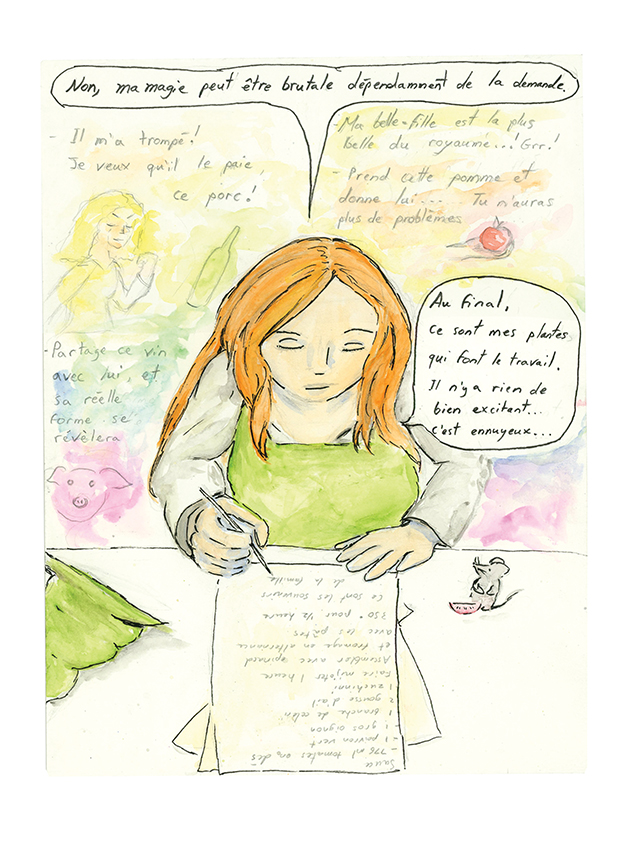 Non, ma magie peut être brutale dépendamment de la demande.
- Il m'a trompé!
Je veux qu'il le paie,
ce porc!
- Ma belle-fille est la plus
belle du royaume...! Grr!
- Prend cette pomme et
donne lui.... Tu n'auras
plus de problèmes
Au final,
ce sont mes plantes
qui font le travail.
Il n'y a rien de
bien excitant...
c'est ennuyeux...
- Partage ce vin
avec lui, et
sa réelle
forme se
révèlera
Sauce
- 796 ml tomates en dés
- 1 poivron vert
- 1 gros oignon
1 branche de céleri
2 gousse d'ail
1 zuchinni
Faire mijoter 1 heure
Assembler avec épinard
et fromage en alternance
avec les pâtes
350° pour 1/2 heure
Ce sont les souvenirs
de la famille